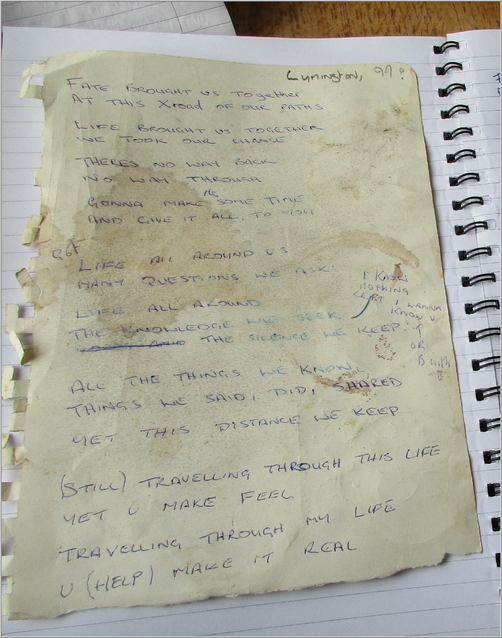 Lymington, 99?
FATE BROUGHT US TOGETHER
AT THIS Xroad OF OUR PATHS
LIFE BROUGHT US TOGETHER
WE TOOK OUR CHANCE
THERES NO WAY BACK
NO WAY THROUGH
GONNA MAKE SOME TIME
AND GIVE IT ALL, TO YOU
LIFE All AROUND US
MANY QUESTIONS WE ASK
LIFE ALL AROUND
THE KNOWLEDGE WE SEEK
THE SILENCE WE KEEP
I KNOW
NOTHING
CEPT I WANNA
KNOW U
OR
B with
U
ALL THE THINGS WE KNOW
THINGS WE SAID, DID, SHARED
YET THIS DISTANCE WE KEEP
(STILL) TRAVELLING THROUGH THIS LIFE
YET U MAKE FEEL
TRAVELLING THROUGH MY LIFE
U (HELP) MAKE IT REAL